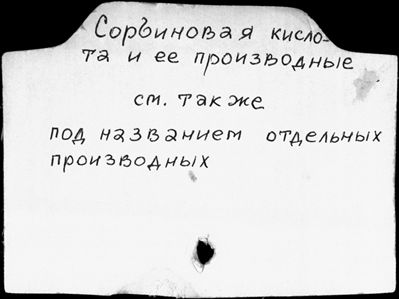 Сорбиновая кисло-
та и ее производные
см. также
под названием отдельных
производных